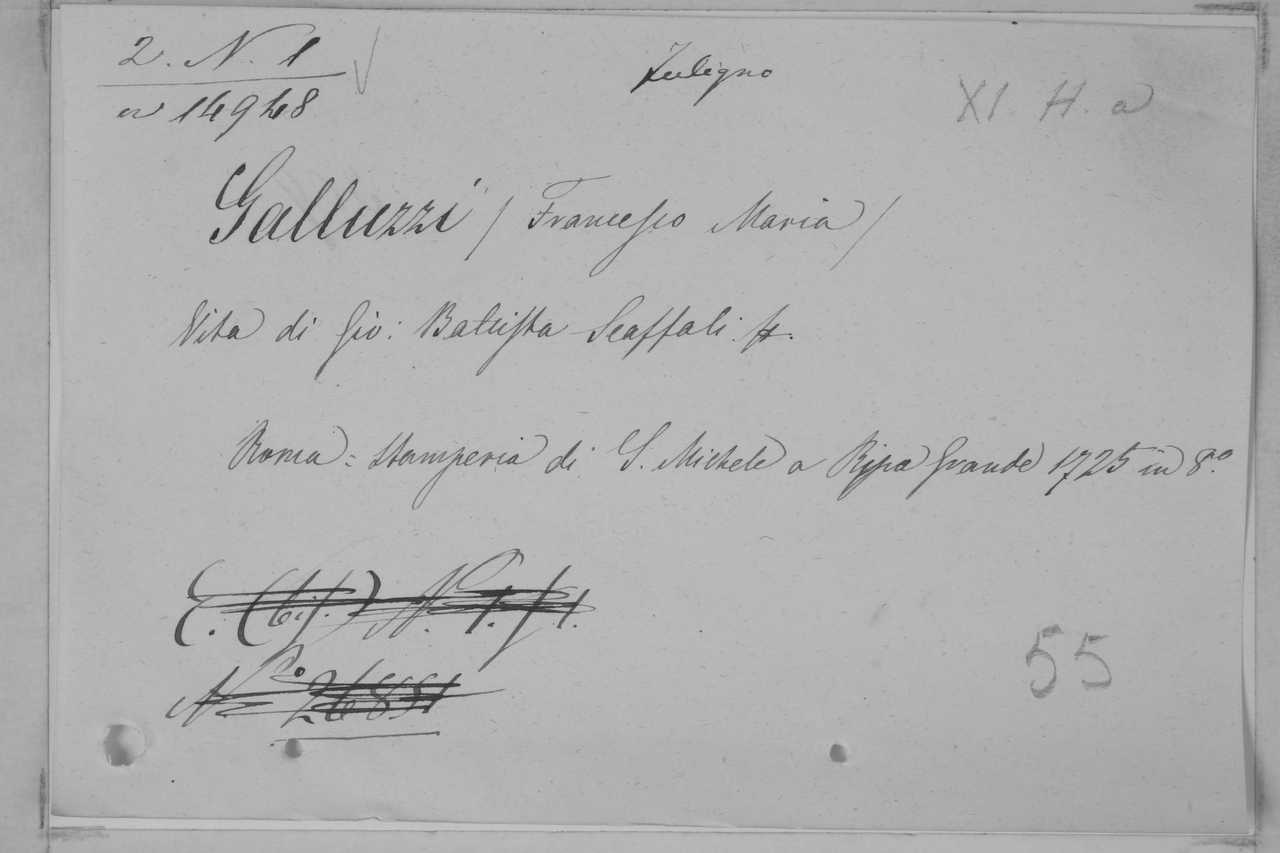 2. N. 1
14948
Fuligno
XI. H. a
Galluzzi / Francesco Maria /
Vita di Gio: Battista Scaffali.
Roma: stamperia di S. Michele a Ripa Grande 1725 in 8.º
Nº 26851
55